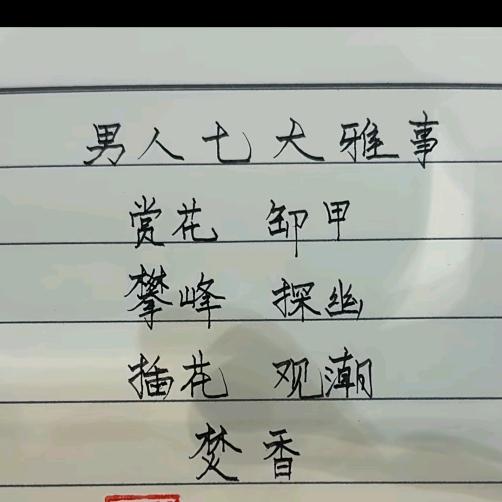 男人七大雅事
赏花 卸甲
攀峰 探幽
插花 观潮
焚香